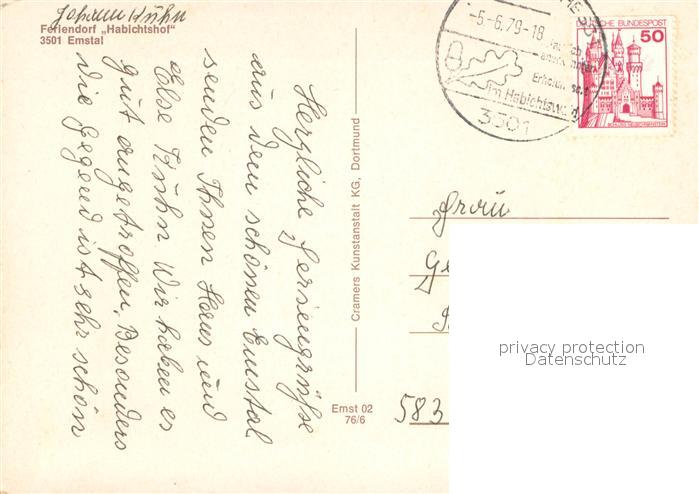 Johann Kühn
Feriendorf „Habichtshof"
3501 Emstal
Herzliche Feriengrüße
aus dem schönen Emstal
senden Ihnen Hans und
Else Kühn. Wir haben es
gut angetroffen, Besonders
die Gegend ist sehr schön
Cramers Kunstanstalt KG, Dortmund
Emst 02
76/6
-5-6.79-18
im Habichtswald
3501
DEUTSCHE BUNDESPOST
50
SCHLOSS NEUSCHWANSTEIN
Frau
583
privacy protection
Datenschutz